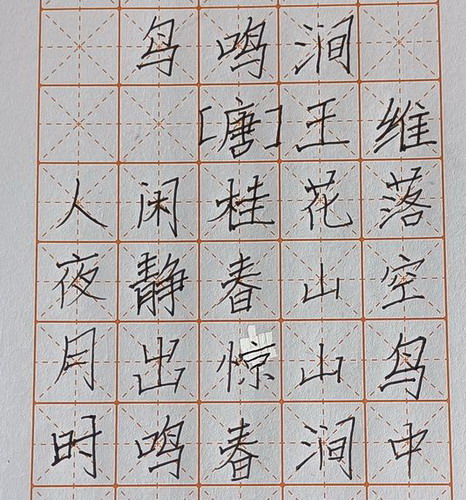 鸟鸣涧
[唐]王维
人闲桂花落
夜静春山空
月出惊山鸟
时鸣春涧中